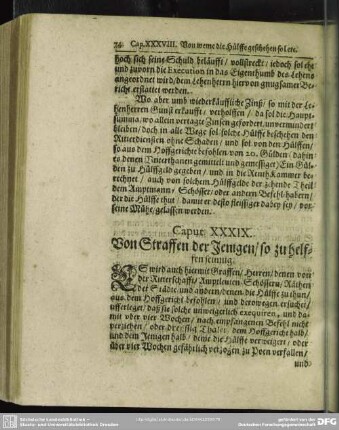 74 Cap. XXXVIII. Von weme die Hülffe geschehen sol etc.
hoch sich seine Schuld beläufft / vollstreckt / iedoch sol ehe
und zuvorn die Execution in das Eigenthumb des Lehens
angeordnet wird / dem Lehenherrn hiervon gnugsamer Be-
richt erstattet werden.
Wo aber umb wiederkäuffliche Zinß / so mit der Le-
henherren Gunst erkaufft / verholffen / da sol die Haupt-
summa, wo allein vertagte Zinsen gefordert, unvermindert
bleiben / doch in alle Wege sol solche Hülffe beschehen den
Ritterdiensten ohne Schaden / und sol von den Hülffen /
so aus dem Hoffgericht befohlen von 20. Gülden / dahin
Ein Gül-
den zu Hülffgeld gegeben / und in die Renth Kammer be-
rechnet / auch von solchem Hülffgelde der zehende Theil
dem Amptmann / Schösser / oder andern Befehlhabern /
der die Hülffe thut / damit er desto fleissiger dabey sey / vor
seine Mühe, gelassen werden.
Caput XXXIX.
Von Straffen der Jenigen / so zu helf-
fen seumig.
ES wird auch hiermit Graffen / Herren / denen von
der Ritterschafft / Amptleuten Schössern / Räthen
der Städte, und andern / denen die Hülffe zu thun /
aus dem Hoffgericht befohlen / und derowegen ersuchet /
aufferleget / daß sie solche unweigerlich exequiren, und da-
mit über vier Wochen / nach empfangenen Befehl nicht
verziehen / oder dreyssig Thaler dem Hoffgericht halb /
und dem Jenigen halb / deme die Hülffe verweigert / oder
über vier Wochen gefährlich verzogen zu Poen verfallen /
und